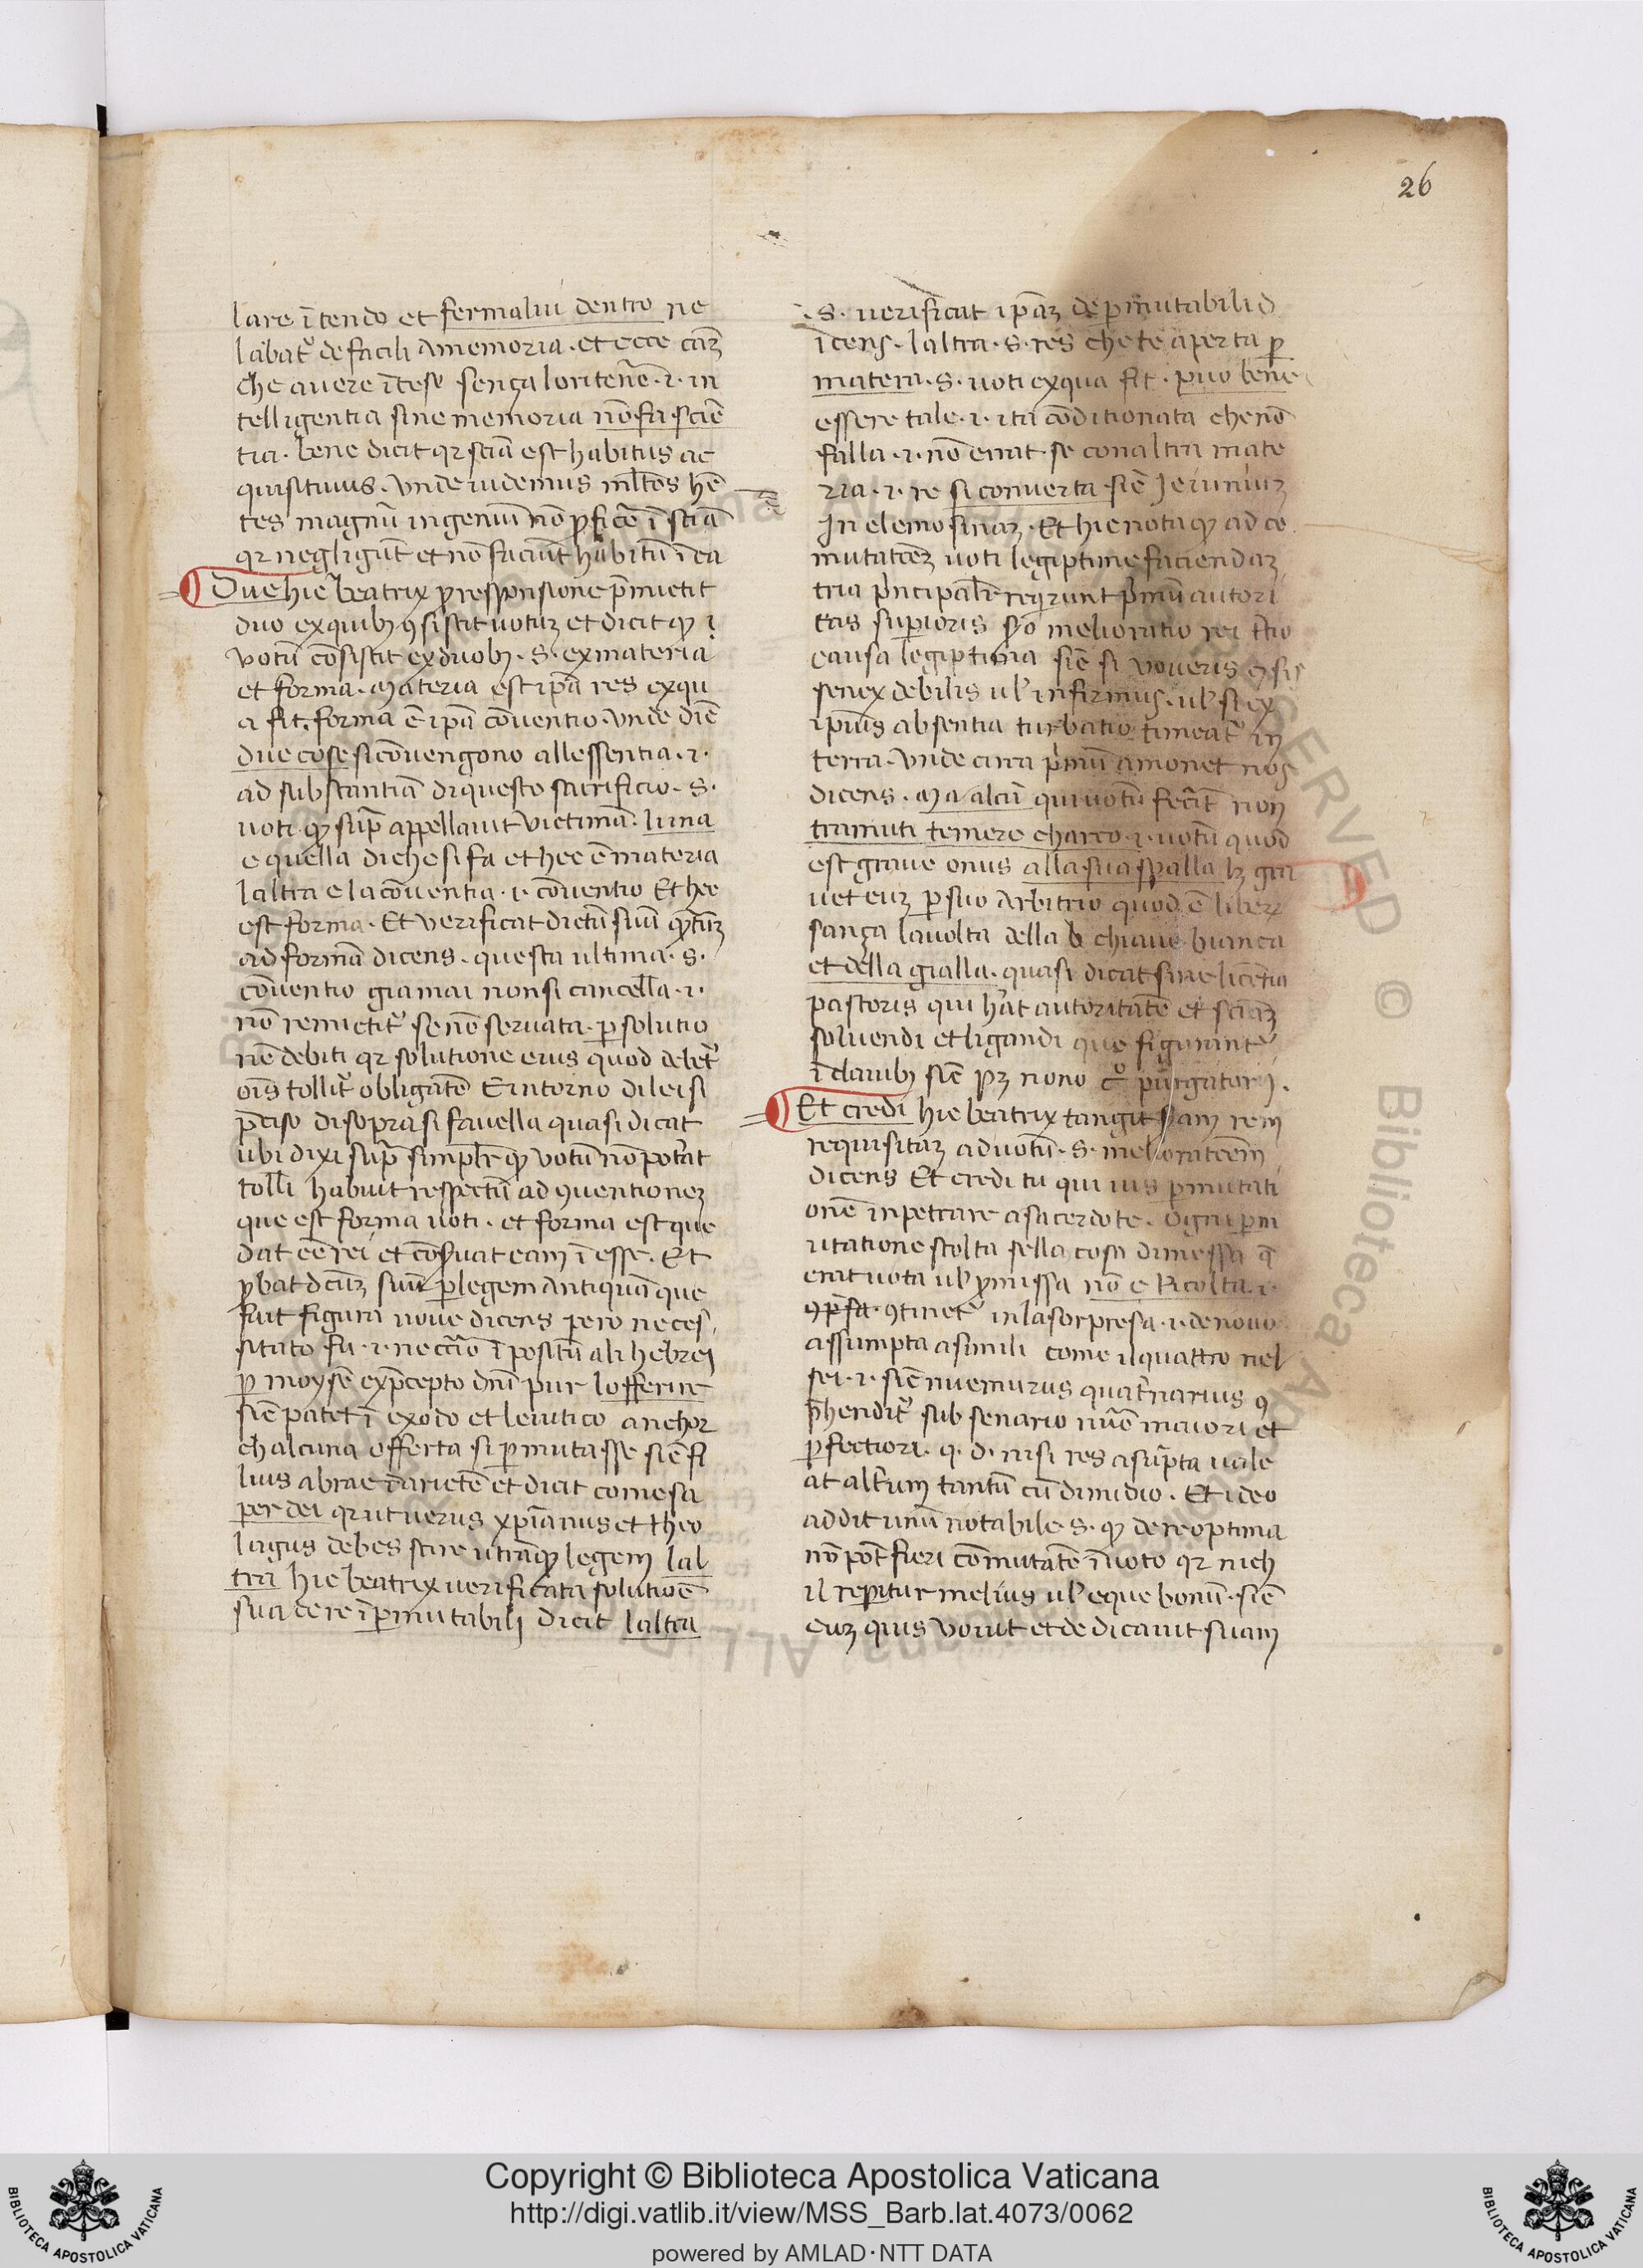 26
lare ītendo et fermalui dentro ne
labat᷑ de facili a memoria · et ecce caȝ
che auere īteso senza lo ritenē · i · in
telligentia sine memoria nō fa sciē
tia · bene dicit qr sciā est habitus ac
quisitiuus · vnde uidemus ml̄tos hn̄
tes magnū ingeniū nō ꝓficē ī sciā
qr negligūt et nō faciūt habitū ī ea
Due hic beatrix ꝓ responsione p̄mictit
duo ex quibȝ ꝯsistit uotuȝ et dicit ꝙ
votū cōsistit ex duobȝ · s · ex materia
et forma · materia est ip̄a res ex qu
a fit · forma ē ip̄a cōuentio · vnde diē
due cose si cōuengono allessentia · i ·
ad substantiā di questo sacrificio · s ·
uoti · ꝙ sup̄ appellauit victimā · luna
e quella di che si fa et hec ē materia
laltra e la cōuentia · i · cōuentio Et hec
est forma · Et verificat dictū suū ꝙtuȝ
ad formā dicens · questa ultima · s ·
cōuentio gia mai non si cancell̄a · i ·
nō remictit᷑ se nō seruata · ꝑ solutio
nē debiti qr solutione eius quod debet᷑
oīs tollit᷑ obligatē E intorno di lei si
p̄ciso di sopra si fauella quasi dicat
ubi dixi sup̄ simpl̄r ꝙ votū nō potat
tolli habuit respectū ad ꝯuentioneȝ
que est forma uoti · et forma est que
dat eē rei et cōs̄uat eam ī esse · Et
ꝓbat dcūȝ suū ꝑ legem antiquā que
fuit figura noue dicens pero neces
sitato fu · i · neccīo īpositū ali hebrei
ꝑ moysē ex p̄cepto dnī pur lofferire
siē patet ī exodo et leuitico anchor
ch alcuna offerta si ꝑmutasse siē fi
lius abrae ī arietē et dicit come sa
per dei qr ut uerus xp̄ianus et theo
lagus debes scire utrāqꝫ legem lal
tra hic beatrix uerificata solutiōe
sua de re īꝑmutabili dicit laltra
· s · uerificat ip̄aȝ de ꝑmutabili d
icens · laltra · s · res che te aperta ꝑ
matera · s · uoti ex qua fit · puo bene
essere tale · i · ita cōditionata che nō
falla · i · nō errat · se con altra mate
ria · i · re si conuerta siē Jeiuniuȝ
In elemosinaȝ · Et hic nota ꝙ ad co
mutatōeȝ uoti legiptime faciendaȝ
tria p̄ncipalr̄ reqrunt p̄mū autori
tas suꝑioris sꝺo melioratio rei t̄tio
causa legiptima siē si voueris
senex debilis ul' infirmus · ul' si ex
ipsius absentia turbatio timeat᷑ in
terra · vnde circa p̄mū amonet nos
dicens · Ma alcū qui uotū fecīt non
tramuti temere charco · i · uotū quod
est graue onus alla sua spalla lȝ gra
uet euȝ ꝑ suo arbitrio quod ē liberȝ
sanza la uolta della b chiaue bianca
et della gialla · quasi dicat sine licētia
pastoris qui hāt autoritatē et sciāȝ
soluendi et ligandi que figurant᷑
ī clauibȝ siē pȝ nono co purgatorij ·
Et credi hic beatrix tangit rem
requisitaȝ ad uotū · s · melioratōem
dicens Et credi tu qui uis ꝑmutati
onē inpetrare a sacerdote · Ogni ꝑm
utatione stolta se lla cosa dimessa q̄
erat uota ul' ꝓmissa nō e Ricolta · i ·
ꝯp̄sa · ꝯtinet᷑ in la sorpresa · i · de nouo
assumpta a simili come il quattro nel
sei · i · siē nuemurus quat᷑narius ꝯ
p̄hendit᷑ sub senario nūo maiori et
ꝑfectiori · q · d · nisi res asūpta uale
at altrum tantū cū dimidio · Et ideo
addit unū notabile · s · ꝙ de re optima
nō pōt fieri cōmutatē ī uoto qr nich
il reperitur melius ul' eque bonū · siē
euȝ quis vouit et dedicauit suam
Copyright © Biblioteca Apostolica Vaticana
http://digi.vatlib.it/view/MSS_Barb.lat.4073/0062
powered by AMLAD·NTT DATA
BIBLIOTECA APOSTOLICA VATICANA
BIBLIOTECA APOSTOLICA VATICANA